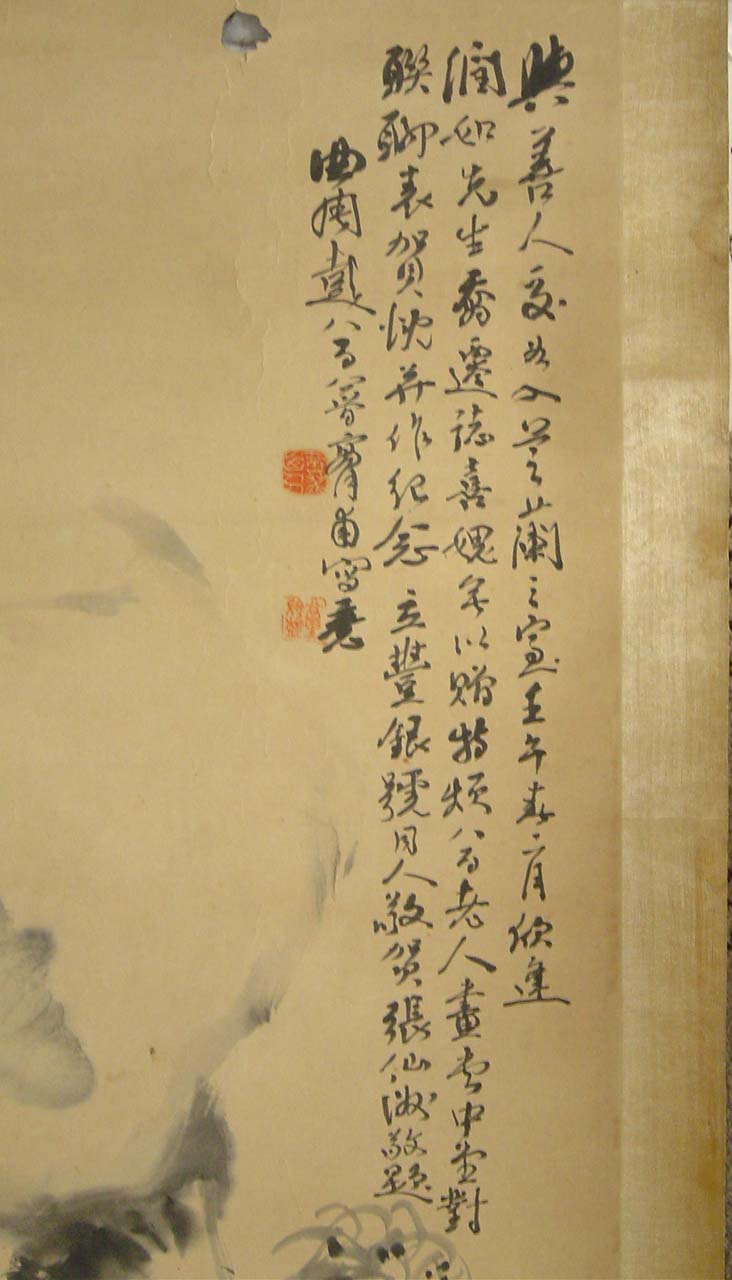 與善人交如入芝蘭之室壬午春二月欣逢
潤如先生喬遷誌喜媿無以贈特煩八百老人畫中堂對
聯聊表賀忱並作紀念 立豐銀號同人敬賀張仙洲敬題
曲周彭八百寫意